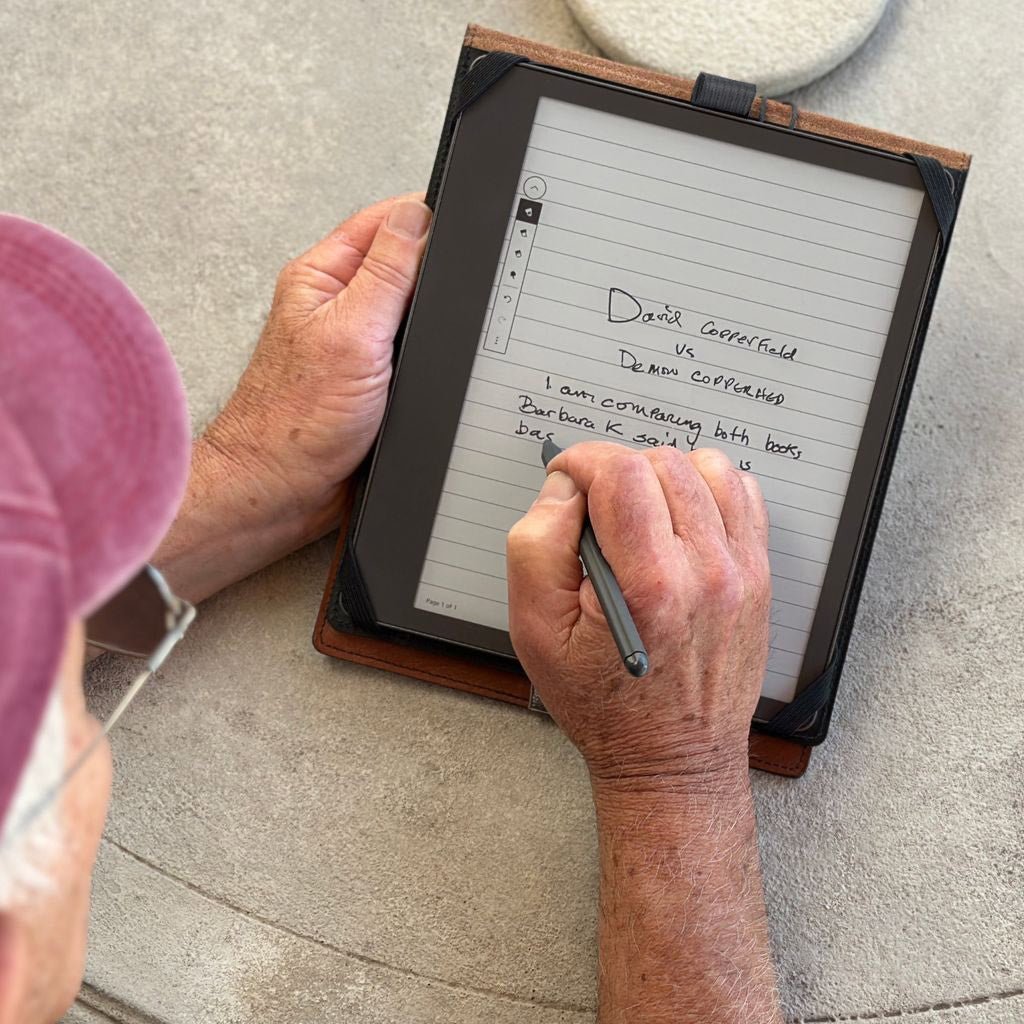 David Copperfield
vs
Demon COPPERHED
I am comparing both books
Barbara K said is
bas
Page 1 of 1